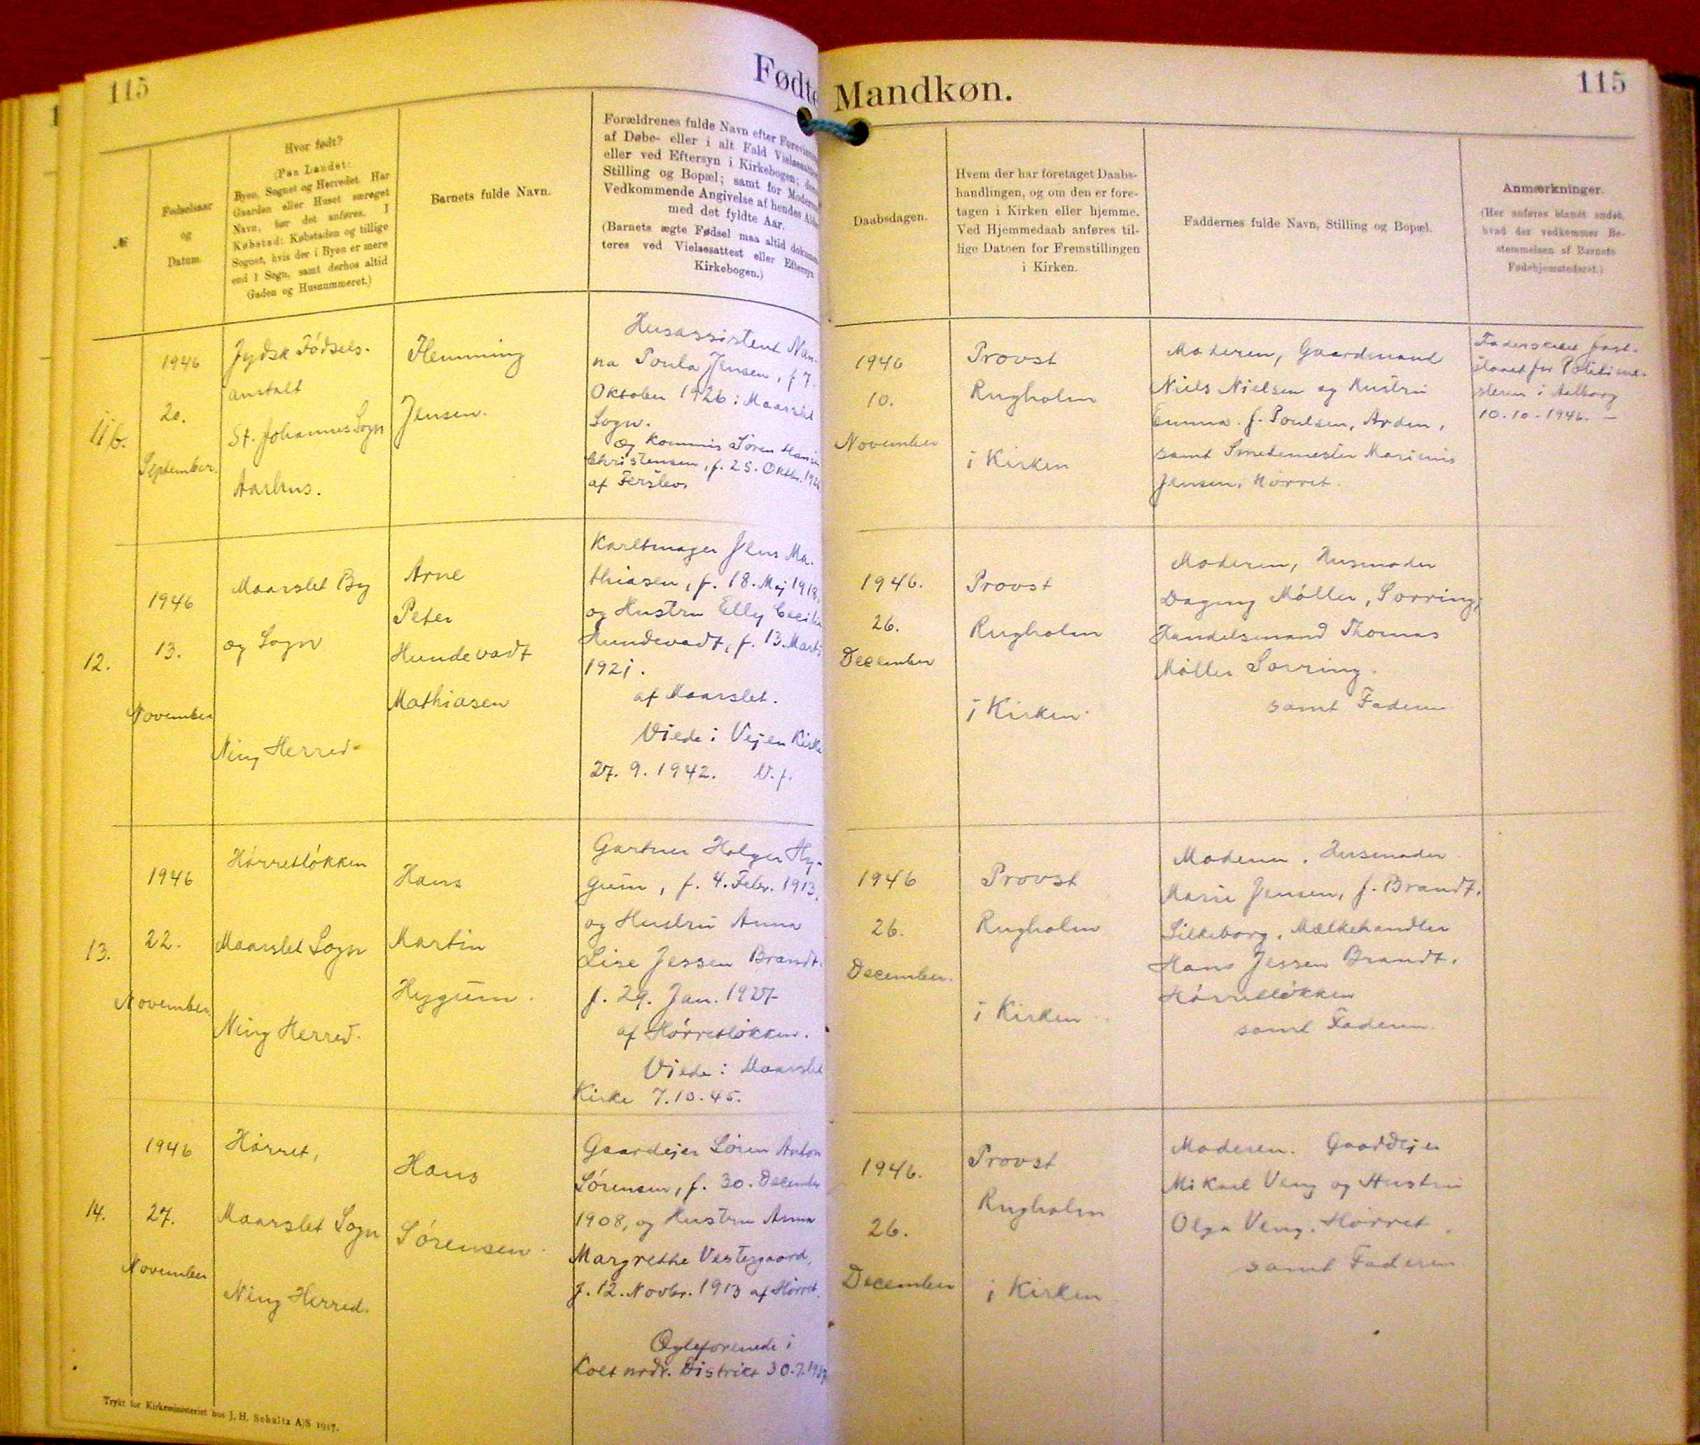 115
Fødte
Mandkøn.
115
№
Fødselsaar
og
Datum.
Hvor født?
(Paa Landet:
Byen, Sognet og Herredet. Har
Gaarden eller Huset særeget
Navn, bør det anføres. I
Købstad: Købstaden og tillige
Sognet, hvis der i Byen er mere
end 1 Sogn, samt derhos altid
Gaden og Husnummeret.)
Barnets fulde Navn.
Forældrenes fulde Navn efter
af Døbe- eller i alt Fald
eller ved Eftersyn i Kirkebogen;
Stilling og Bopæl; samt for
Vedkommende Angivelse af hendes
med det fyldte Aar.
(Barnets ægte Fødsel maa altid
teres ved Vielsesattest eller Eftersyn
Kirkebogen.)
Daabsdagen.
Hvem der har foretaget Daabs-
handlingen, og om den er fore-
tagen i Kirken eller hjemme.
Ved Hjemmedaab anføres til-
lige Datoen for Fremstillingen
i Kirken.
Faddernes fulde Navn, Stilling og Bopæl.
Anmærkninger.
(Her anføres blandt andet,
hvad der vedkommer Be-
stemmelsen af Barnets
Fødehjemstedsret.)
11b.
1946
20.
September.
Jydsk Fødsels-
anstalt
St. Johannes Sogn
Aarhus.
Flemming
Jensen.
Husassistent Nan-
na Poula Jensen, f. 7.
Oktober 1926 i Maarslet
Sogn.
og Kommis Søren
Christensen, f. 25. Oktbr.
af Ferslev
1946
10.
November
Provst
Rugholm
i Kirken
Moderen, Gaardmand
Niels Nielsen og Hustru
Emma f. Poulsen, Arden,
samt Smedemester Marinus
Jensen, Hørret.
Faderskabet fast-
slaaet for Politime-
steren i Aalborg
10.10-1946. —
12.
1946
13.
November
Maarslet By
og Sogn
Ning Herred
Arne
Peter
Hundevadt
Mathiasen
Karetmager Jens Ma-
thiasen, f. 18. Maj 1918,
og Hustru Elly Cecilie
Hundevadt, f. 13. Marts
1921.
af Maarslet.
Viede i Vejen Kirke
27. 9. 1942. V.f.
1946.
26.
December
Provst
Rugholm
i Kirken
Moderen, Husmoder
Dagny Møller, Sorring,
Handelsmand Thomas
Møller Sorring.
samt Faderen
13.
1946
22.
November
Hørretløkken
Maarslet Sogn
Ning Herred.
Hans
Martin
Hygum.
Gartner Holger Hy-
gum, f. 4. Febr. 1913,
og Hustru Anna
Lise Jessen Brandt.
f. 29. Jan. 1927
af Hørretløkken.
Viede i Maarslet
Kirke 7.10.45.
1946
26.
December.
Provst
Rugholm
i Kirken
Moderen. Husmoder
Marie Jensen, f. Brandt,
Silkeborg, Mælkehandler
Hans Jessen Brandt,
Hørretløkken
samt Faderen
14.
1946
27.
November
Hørret,
Maarslet Sogn
Ning Herred.
Hans
Sørensen.
Gaardejer Søren Anton
Sørensen, f. 30. December
1908, og Hustru Anna
Margrethe Vestergaard,
f. 12. Novbr. 1913 af Hørret.
Ægteforenede i
Kolt nrdr. Distrikt 30.7.
1946.
26.
December
Provst
Rugholm
i Kirken
Moderen. Gaardejer
Mikael Veng og Hustru
Olga Veng. Hørret.
samt Faderen
Trykt for Kirkeministeriet hos J. H. Schultz A/S 1917.